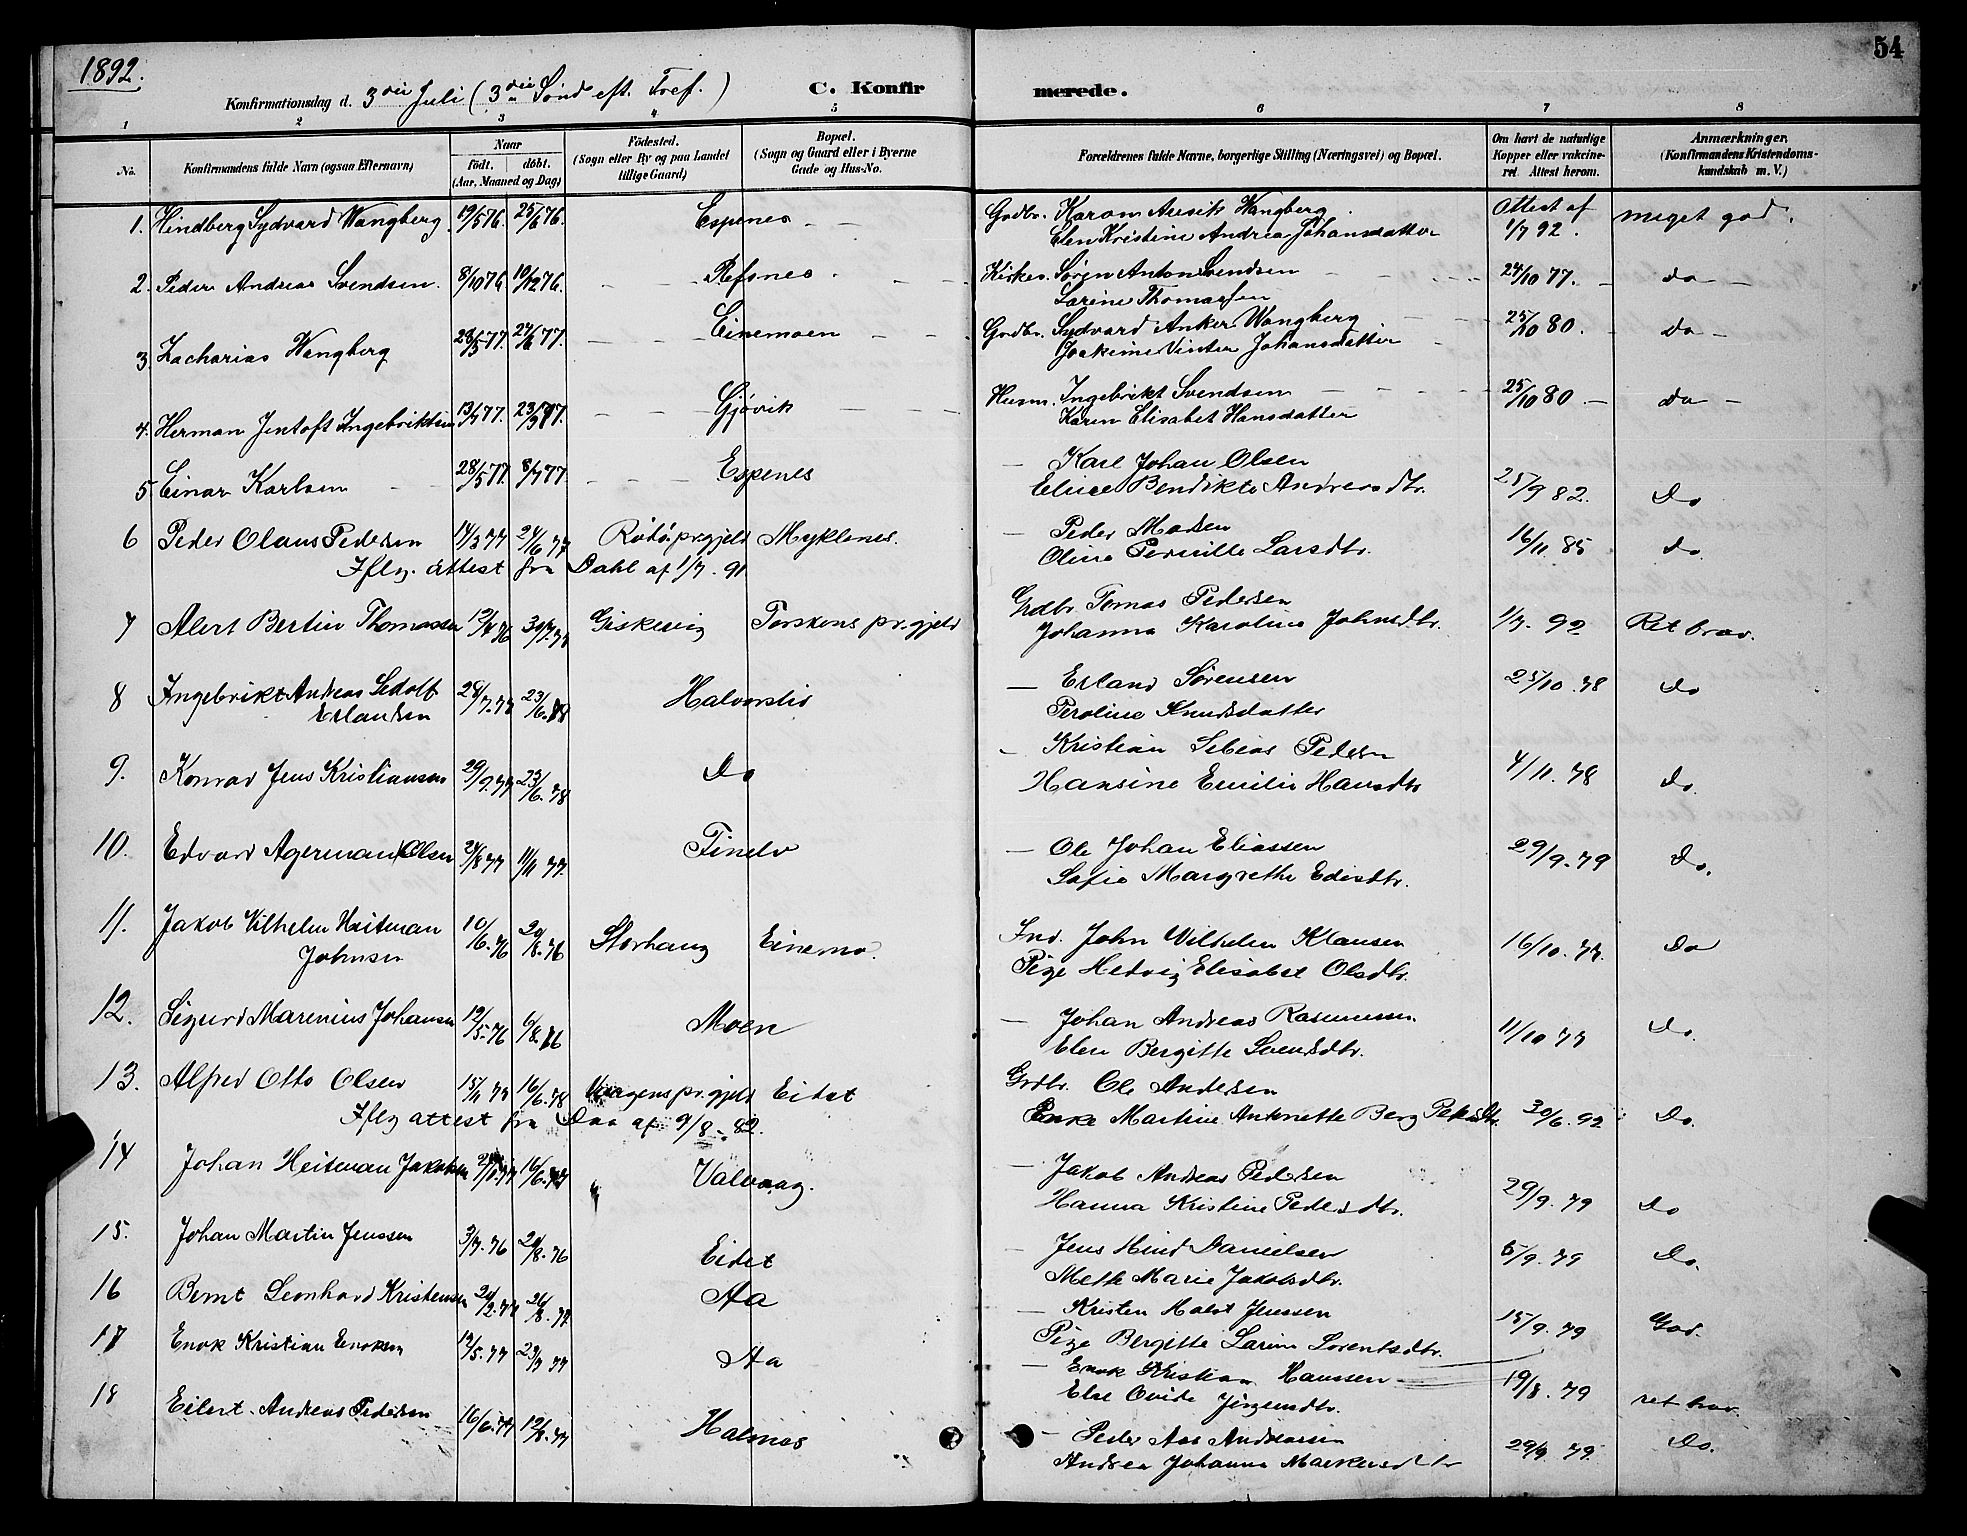 1892.
54
Konfirmationsdag d. 3die Juli (3die Sönd eft. Tref.) C. Konfirmerede.
1 2 3 4 5 6 7 8
No. Konfirmandens fulde Navn (ogsaa Efternavn) Naar födt. döbt. (Aar, Maaned og Dag) Födested. (Sogn eller By og paa Landet tillige Gaard) Bopæl. (Sogn og Gaard eller i Byerne Gade og Hus-No. Forældrenes fulde Navne, borgerlige Stilling (Næringsvei) og Bopæl. Om havt de naturlige Kopper eller vakcineret. Attest herom. Anmærkninger. (Konfirmandens Kristendomskundskab m. V.)
1. Hindberg Sydvard Wangberg 19/5 76. 25/6 76. Espenes Grdbr. Wangberg Attest af meget god.
Elen Kristine Andrea Johansdatter 1/7 92.
2. Peder Andreas Svendsen. 8/10 76 10/12 76. Refsnes Kirkes. Sören Anton Svendsen 24/10 77. do
Larine Thomassen
3. Zacharias Wangberg 28/3 77 24/6 77. Einemoen Grdbr. Sydvard Anker Wangberg 25/10 80. do
Joakime Vinter Johansdatter
4. Herman Jentoft Ingebriktsen 13/7 77. 23/9 77. Gjövik Husm. Ingebrikt Svendsen 25/10 80 do
Karen Elisabet Hansdatter
5 Einar Karlsen 28/5 77. 8/7 77. Espenes Karl Johan Olsen
Bendikte Andreasdtr. 25/9 82. Do
6 Peder Olaus Pedersen 14/3 77 24/6 77 Rödö prgjeld Myklenes. Peder Madsen 16/11 85 Do.
Oline Pernille Larsdtr.
Iflg. attest fra Dahl af 1/7. 91
7 Alert Bertin Thomassen 12/4 76 Giskevig Torskens pr.gjeld Grdbr. Tomas Pedersen
Johanna Karoline Johnsdtr. 1/7. 92 Ret brav.
8 Ingebrikt Andreas Sedolf 28/7. 77 23/6. 78 Halvorsli Erland Sörensen 25/10. 78 Do
Erlandsen Peroline Knudsdatter
9. Konrad Jens Kristiansen 29/9. 77 23/6. 78 Do Kristian Pedersen 4/11. 78 Do.
Hansine Emilie Hansdtr
10. Edvard Agerman Olsen 24/8 77 11/11 77. Finelv Ole Johan Eliassen 29/9. 79 Do.
Sofie Margrethe Edisdtr.
11. Jakob Vilhelm Heitman 10/6. 76 20/8. 76 Storhaug Einemo. Ind. John Wilhelm Klausen 16/10. 77. Do
Johnsen Pige Hedvig Elisabet Olsdtr.
12. Sigurd Marenius Johansen 19/5. 76 6/8. 76 Moen Johan Andreas Rasmussen 11/10 77 Do.
Elen Bergitte Svendsdtr.
13. Alfred Otto Olsen 15/11 77 16/6. 78 pr.gjeld Eidet Grdbr. Ole Andersen
Martine Antonette Berg Pedersdtr. 30/6. 92 Do.
Iflg attest fra Daa af 9/8 - 82.
14 Johan Heitman Jakobsen Valvaag. Jakob Andreas Pedersen
Hanna Kristine Pedersdtr. 29/9. 79 Do
15. Johan Martin Jenssen 3/7. 76 20/8. 76 Eidet Jens Hind Danielsen 5/9. 79 Do.
Mette Marie Jakobsdtr.
16 Bernt Leonhard Kristensen 24/2. 77 26/8. 77 Aa Kristen Holst Jenssen 15/9. 79 God.
Pige Bergitte Larine Lorentsdtr.
17 Enok Kristian Enoksen 12/5. 77 29/7 77 Aa Enok Kristian Hanssen 19/8. 79 ret brav.
Else Ovide Jörgensdtr.
18 Eilert Andreas Pedersen 16/6. 77 19/8. 77 Halsnes Peder Aas Andreassen 29/9 79. Do.
Andrea Johanna Markusdtr